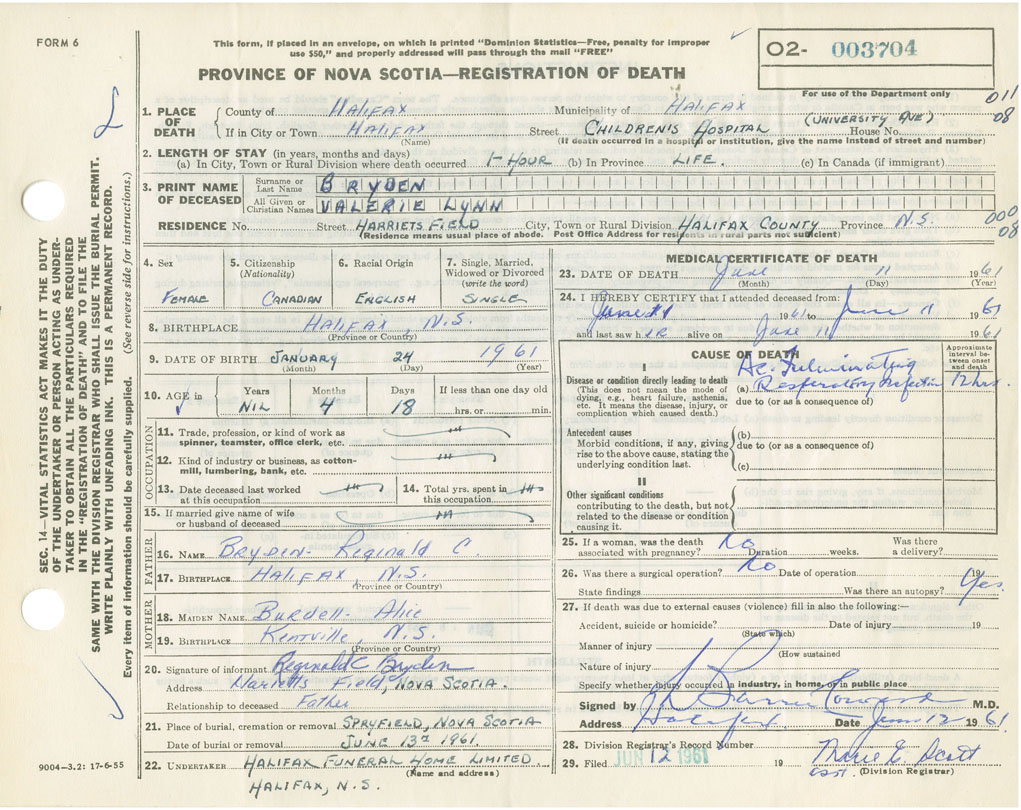 FORM 6
This form, if placed in an envelope, on which is printed "Dominion Statistics—Free, penalty for improper
use $50," and properly addressed will pass through the mail "FREE"
O2- 003704
PROVINCE OF NOVA SCOTIA—REGISTRATION OF DEATH
For use of the Department only
011
08
1. PLACE OF DEATH
County of Halifax Municipality of Halifax
(UNIVERSITY AVE)
If in City or Town Halifax Street CHILDREN'S HOSPITAL House No.
(Name) (If death occurred in a hospital or institution, give the name instead of street and number)
2. LENGTH OF STAY (in years, months and days)
(a) In City, Town or Rural Division where death occurred 1-HOUR (b) In Province LIFE. (c) In Canada (if immigrant)
3. PRINT NAME OF DECEASED
Surname or Last Name BRYDEN
All Given or Christian Names VALERIE LYNN
RESIDENCE No. Street HARRIETSFIELD City, Town or Rural Division HALIFAX COUNTY Province N.S.
000
08
(Residence means usual place of abode. Post Office Address for residents in rural parts not sufficient)
4. Sex FEMALE
5. Citizenship (Nationality) CANADIAN
6. Racial Origin ENGLISH
7. Single, Married, Widowed or Divorced (write the word) SINGLE
8. BIRTHPLACE HALIFAX, N.S.
(Province or Country)
9. DATE OF BIRTH JANUARY 24 1961
(Month) (Day) (Year)
10. AGE in Years NIL Months 4 Days 18 If less than one day old hrs. or min.
OCCUPATION
11. Trade, profession, or kind of work as
spinner, teamster, office clerk, etc.
12. Kind of industry or business, as cotton-
mill, lumbering, bank, etc.
13. Date deceased last worked
at this occupation
14. Total yrs. spent in
this occupation
15. If married give name of wife
or husband of deceased
FATHER
16. NAME Bryden- Reginald C.
17. BIRTHPLACE HALIFAX, N.S.
(Province or Country)
MOTHER
18. MAIDEN NAME Burdell- Alice
19. BIRTHPLACE Kentville, N.S.
(Province or Country)
20. Signature of informant Reginald C Bryden
Address Harietts Field, NOVA SCOTIA.
Relationship to deceased Father
21. Place of burial, cremation or removal SPRYFIELD, NOVA SCOTIA
Date of burial or removal JUNE 13th 1961.
22. UNDERTAKER HALIFAX FUNERAL HOME LIMITED
(Name and address)
HALIFAX, N.S.
9004—3.2: 17-6-55
MEDICAL CERTIFICATE OF DEATH
23. DATE OF DEATH June 11 1961
(Month) (Day) (Year)
24. I HEREBY CERTIFY that I attended deceased from:
June 11 1961 to June 11 1961
and last saw her alive on June 11 1961
CAUSE OF DEATH
Approximate interval between onset and death
I
Disease or condition directly leading to death
(This does not mean the mode of
dying, e.g., heart failure, asthenia,
etc. It means the disease, injury, or
complication which caused death.)
(a) Ac. Fulminating
Respiratory Infection 12 hrs.
due to (or as a consequence of)
Antecedent causes
Morbid conditions, if any, giving
rise to the above cause, stating the
underlying condition last.
(b)
due to (or as a consequence of)
(c)
II
Other significant conditions
contributing to the death, but not
related to the disease or condition
causing it.
25. If a woman, was the death No Was there
associated with pregnancy? Duration weeks. a delivery?
26. Was there a surgical operation? No Date of operation 19
State findings Was there an autopsy? Yes.
27. If death was due to external causes (violence) fill in also the following:—
Accident, suicide or homicide? Date of injury 19
(State which)
Manner of injury
(How sustained
Nature of injury
Specify whether injury occurred in industry, in home, or in public place
Signed by M.D.
Address Halifax Date June 12 1961
28. Division Registrar's Record Number
29. Filed JUN 12 1961 19 Marie E. Scott
(Division Registrar)
SEC. 14—VITAL STATISTICS ACT MAKES IT THE DUTY
OF THE UNDERTAKER OR PERSON ACTING AS UNDER-
TAKER TO OBTAIN ALL THE PARTICULARS REQUIRED
IN THE "REGISTRATION OF DEATH" AND TO FILE THE
SAME WITH THE DIVISION REGISTRAR WHO SHALL ISSUE THE BURIAL PERMIT.
WRITE PLAINLY WITH UNFADING INK. THIS IS A PERMANENT RECORD.
Every item of information should be carefully supplied. (See reverse side for instructions.)